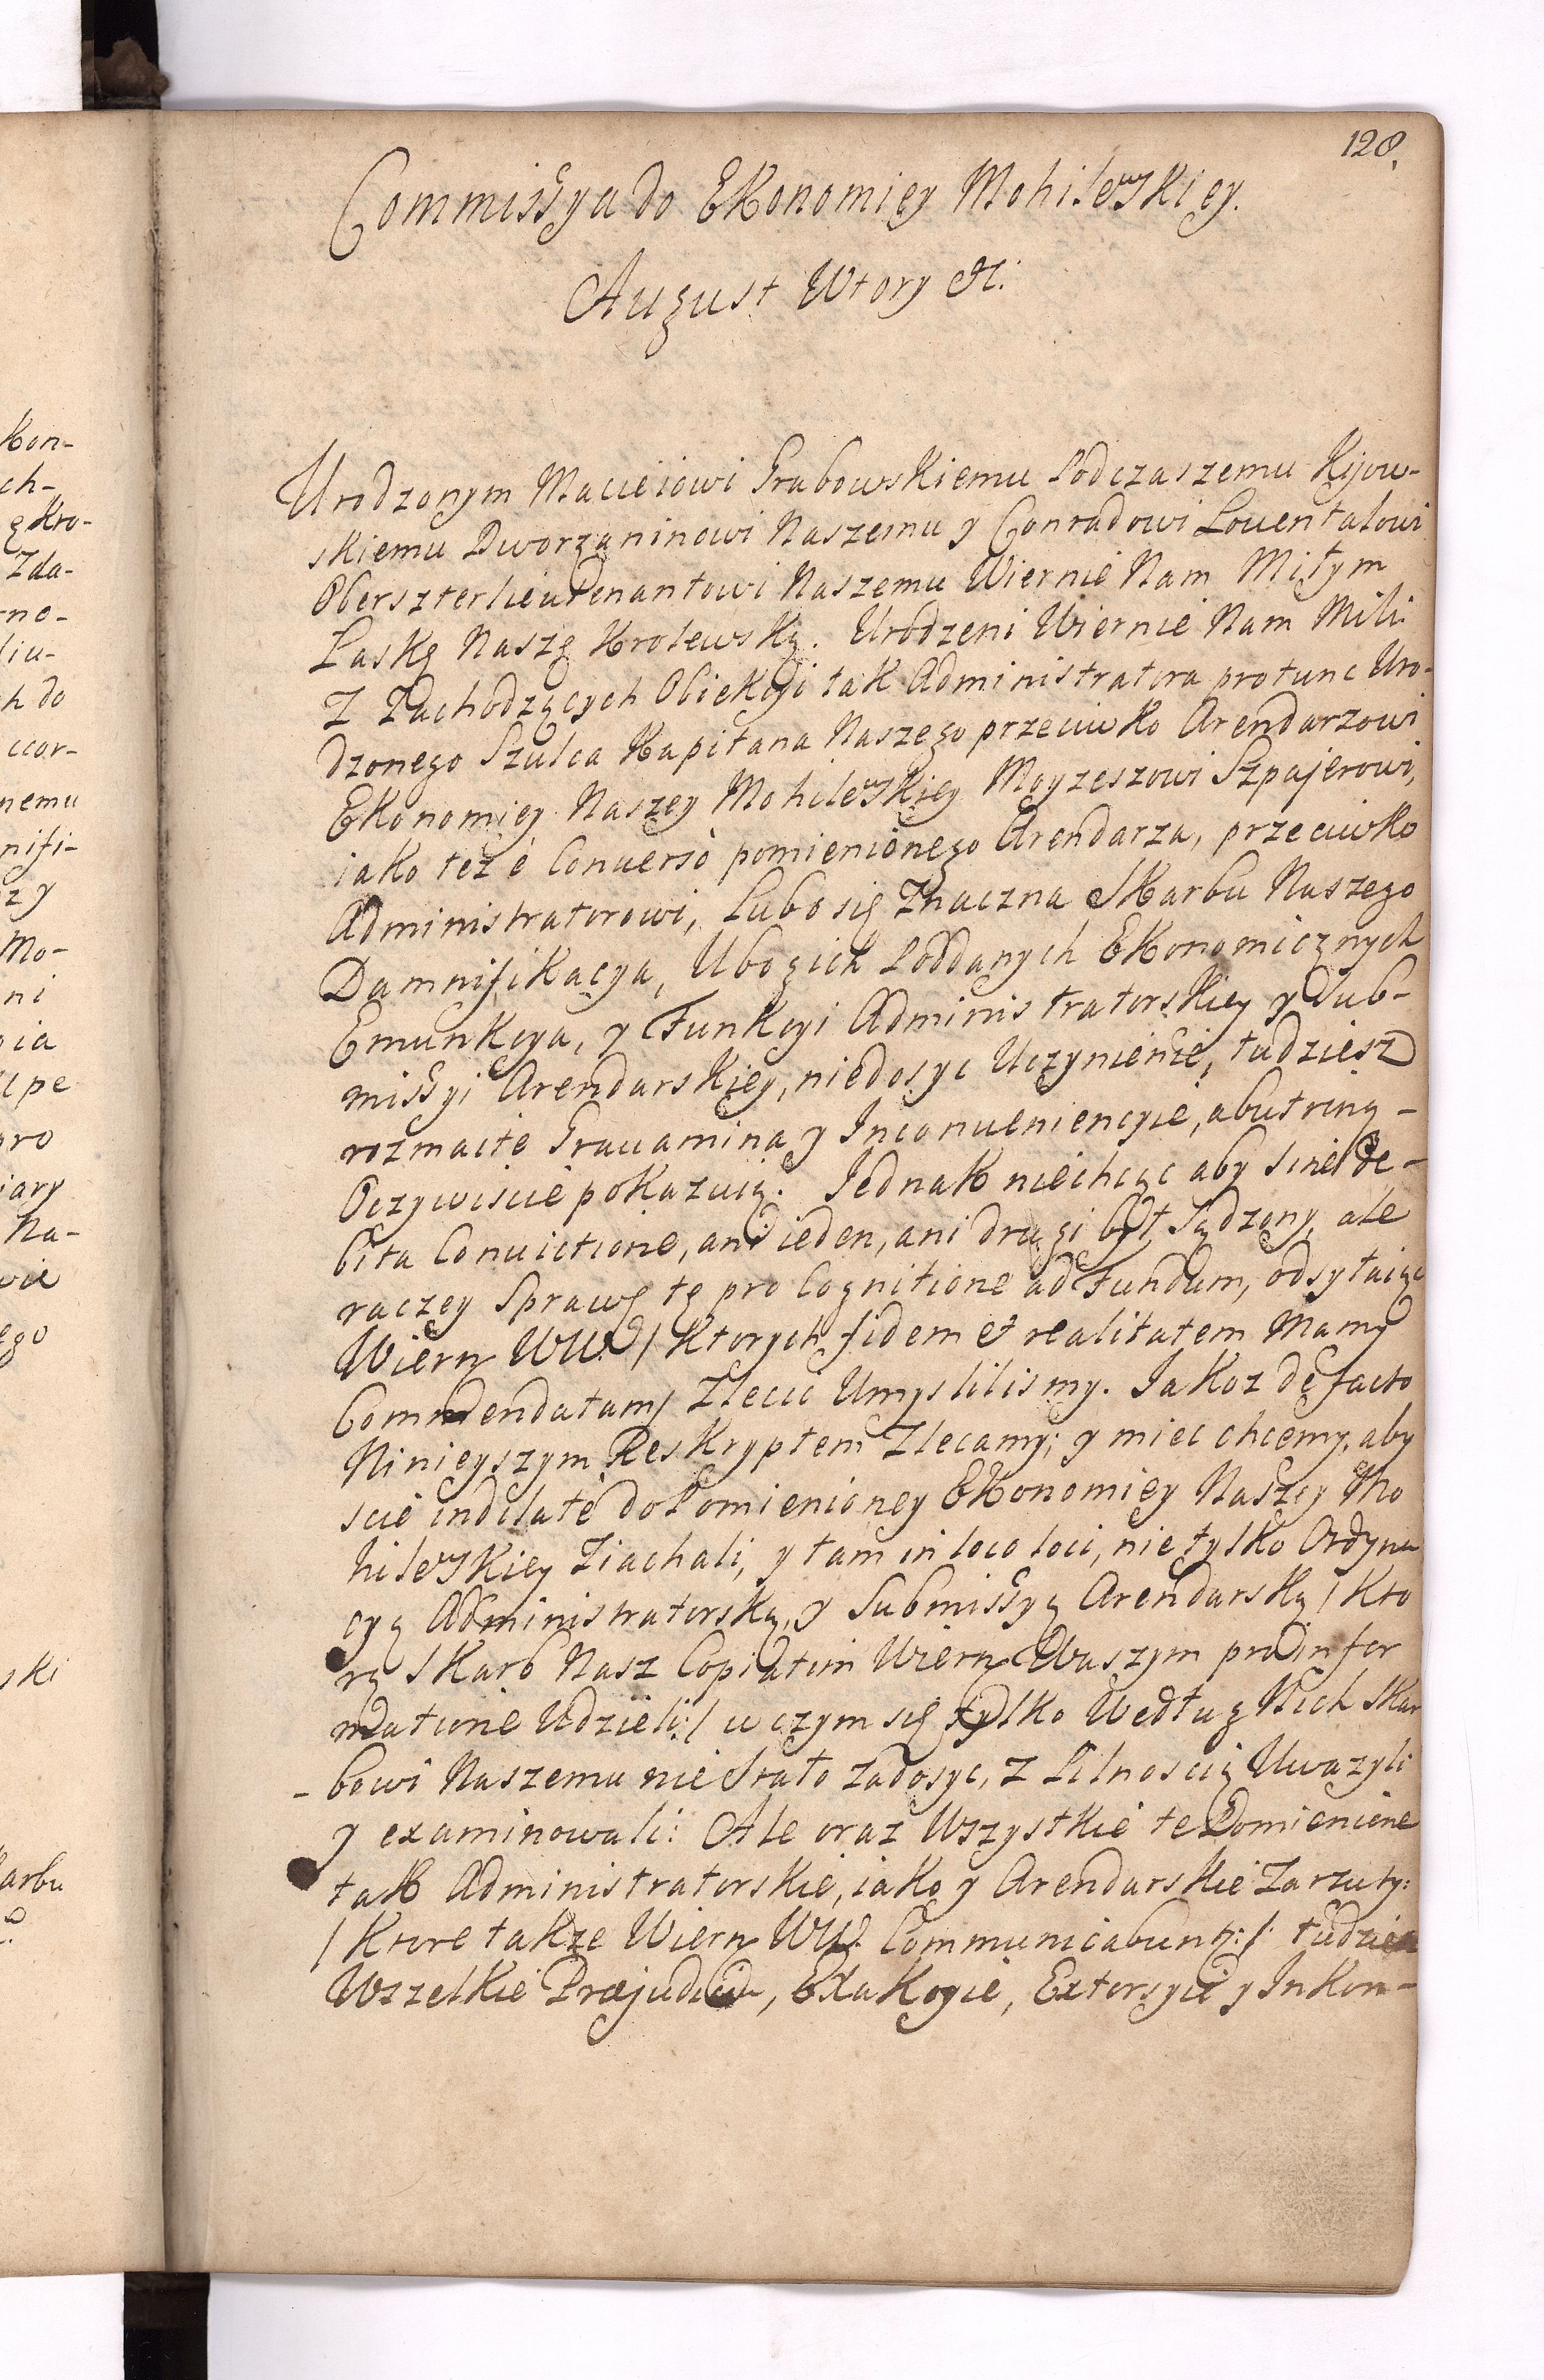 128.
Commissya do Ekonomięy Mohilewskięy.
August Wtory etc:
Urodzonym Macieiowi Grabowskiemu Podczaszemu Kijow-
skiemu Dworzaninowi Naszemu y Conradowi Louentalowi
Oberszterlieutenantowi Naszemu Wiernie Nam Miłym
Łaskę Naszę Krolewską. Urodzeni Wiernie Nam Mili.
Z Zachodzących Obiekcyi tak Administratora protunc Uro-
dzonego Szulca Kapitana Naszego przeciwko Arendarzowi
Ekonomięy Naszey Mohilewskięy Moyzeszowi Szpajerowi,
iako też è Conuersò pomienionego Arendarza, przeciwko
Administratorowi, Lubo się Znaczna Skarbu Naszego
Damnifikacya, Ubogich Poddanych Ekonomicznych
Emunkcya, y Funkcyi Administratorskiey y Sub-
missyi Arendarskięy, niedosyc Uczynienie, tudziesz
rozmaite Grauamina y Inconueniencyie, abutring-
Oczywiscie pokazuią. Jednak niechcąc aby sine de-
bita Conuictione, ani ieden, ani drugi był sądzony, ale
raczey Sprawę tę pro Cognitione ad Fundum, odsyłaiąc
Wiern WW. / Ktorych fidem et realitatem Mamy
Commendatam / Zlecić Umyslilismy. Jakoz de facto
Ninieyszym Reskryptem Zlecamy; y miec chcemy, aby
scie indilatè do Pomienioney Ekonomięy Naszey Mo
hilewskiey Ziachali, y tam in loco loci, nie tylko Ordyna
cyą Administratorską, y Submissyą Arendarską / Kto
rą Skarb Nasz Copiatim Wiern Waszym pro infor
matione Udzieli:/ w czym się tylko Według Nich Skar
- bowi Naszemu nie Stało zadosyc, z Pilnoscią Uwazyli
y examinowali: Ale oraz Wszystkie te Pomienione
tak Administratorskie, iako y Arendarskie Zarzuty:
/ Ktore takze Wiern WW. Communicabuntr:/: tudziesz
Wszelkie Præjudicia, Exakcyie, Extorsyie y Inkon-
Kon-
ch-
ę Kro-
Zda-
no-
liu-
h do
ccor-
nemu
nifi-
z y
Mo-
ni
ia
pe
pro
iary
Na-
ego
ski
arbu